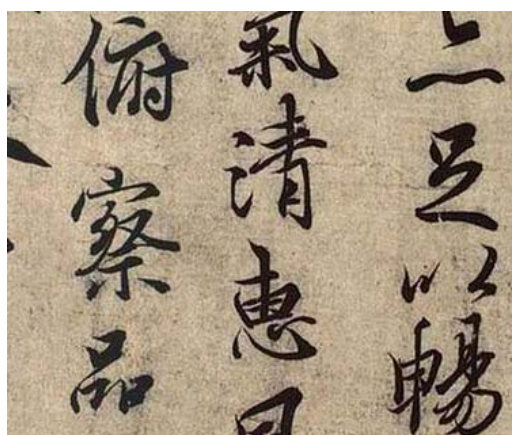 亦足以暢
氣清惠風
俯察品